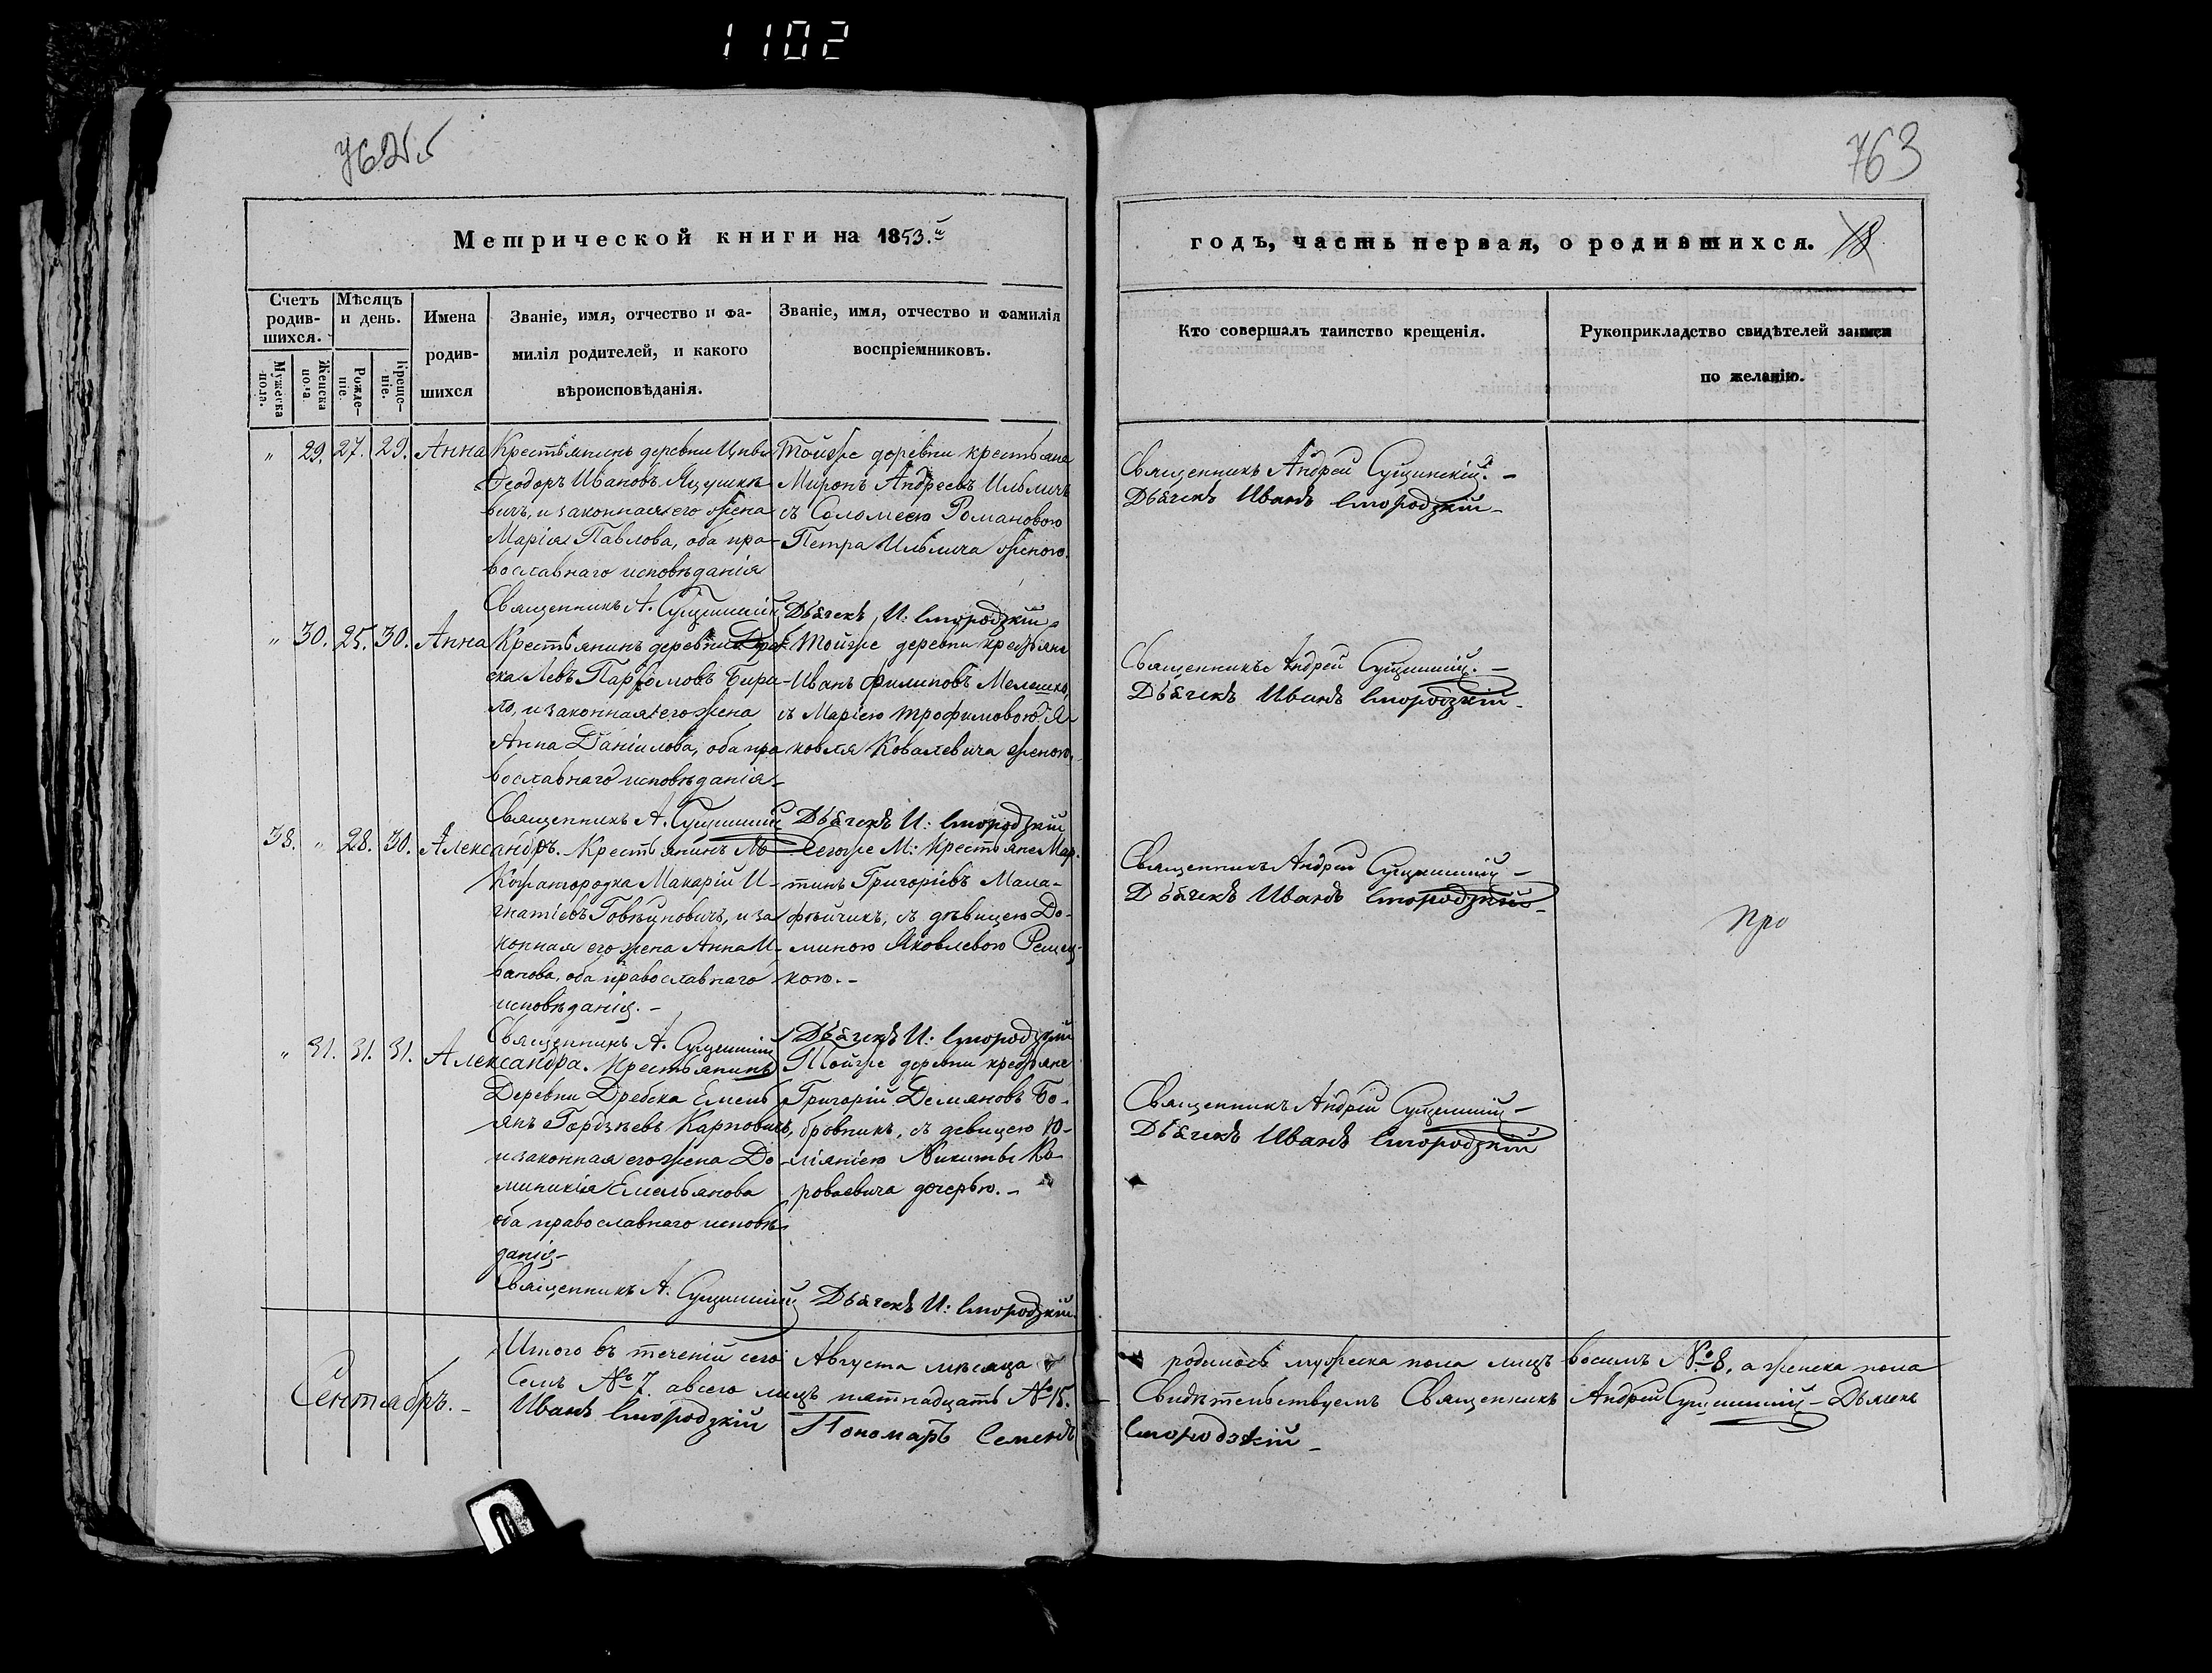 1102
763
Метрической книги на 1853.й
годъ, часть первая, о родившихся. 18
Счетъ родив-
шихся.
Мужеска пола.
Женска пола.
Мѣсяцъ и день.
Рожде-
ніе.
Креще-
ніе.
Имена
родив-
шихся
Званіе, имя, отчество и фа-
милія родителей, и какого
вѣроисповѣданія.
Званіе, имя, отчество и фамилія
воспріемниковъ.
Кто совершалъ таинство крещенія.
Рукоприкладство свидѣтелей записи
по желанію.
" 29. 27. 29. Анна
Крестьянинъ деревни Цны
Ѳеодоръ Ивановъ Яцушке-
вичъ, и законная его жена
Марія Павлова, оба пра-
вославнаго исповѣданія
Священникъ А.
Тойже деревни крестьяне
Миронъ Андреевъ Ильичъ
съ Соломеею Романовою
Петра Ильича женою.
Дьячекъ И: Смородзкій
Священникъ Андрей
Дьячекъ Иванъ Смородзкій
" 30. 25. 30. Анна
Крестьянинъ деревни Дреб-
ска Левъ Парѳомовъ
и законная его жена
Анна Даніилова, оба пра
вославнаго исповѣданія
Священникъ А.
Тойже деревни крестьяне
Иванъ Филиповъ Мелешко,
съ Маріею Трофимовою Я-
ковля Ковалевича женою.
Дьячекъ И: Смородзкій
Священникъ Андрей
Дьячекъ Иванъ Смородзкій
38. " 28. 30. Александръ.
Крестьянинъ М:
Кожангородка Макарій И-
гнатіевъ и за
конная его жена Анна И-
ванова, оба православнаго
исповѣданія.-
Священникъ А.
Сегоже М: Крестьяне Мар-
тинъ Григоріевъ Мала-
фѣйчикъ, съ дѣвицею До-
миною Яковлевою
кою.-
Дьячекъ И: Смородзкій
Священникъ Андрей
Дьячекъ Иванъ Смородзкій
Про
" 31. 31. 31. Александра.
Крестьянинъ
Деревни Дребска Емель
янъ Гордѣевъ Карповичъ,
и законная его жена До-
миникія Емельянова
оба православнаго исповѣ
данія-
Священникъ А.
Тойже деревни крестьяне
Григорій Демяновъ Бо-
бровникъ, съ девицею Ю-
ліяніею Никиты Ко
дочерью.-
Дьячекъ И: Смородзкій
Священникъ Андрей
Дьячекъ Иванъ Смородзкій
Итого въ теченіи сего Августа мѣсяца родилось мужеска пола лицъ восимъ №8, а женска пола
Семь №7. а всего лицъ пятнадцать №15. Свидѣтельствуемъ Священникъ Андрей Дьячекъ
Иванъ Смородзкій Пономарь Семенъ Смородзкій
Сентябрь.-